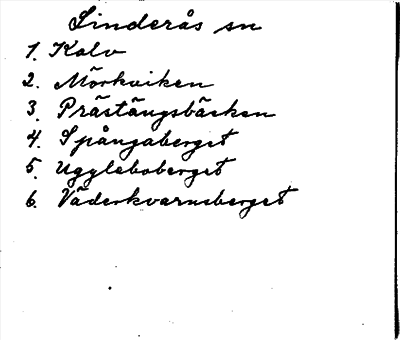 Linderås sn
1. Kalv
2. Mörkviken
3. Prästängsbäcken
4. Spångaberget
5. Uggleboberget
6. Väderkvarnsberget